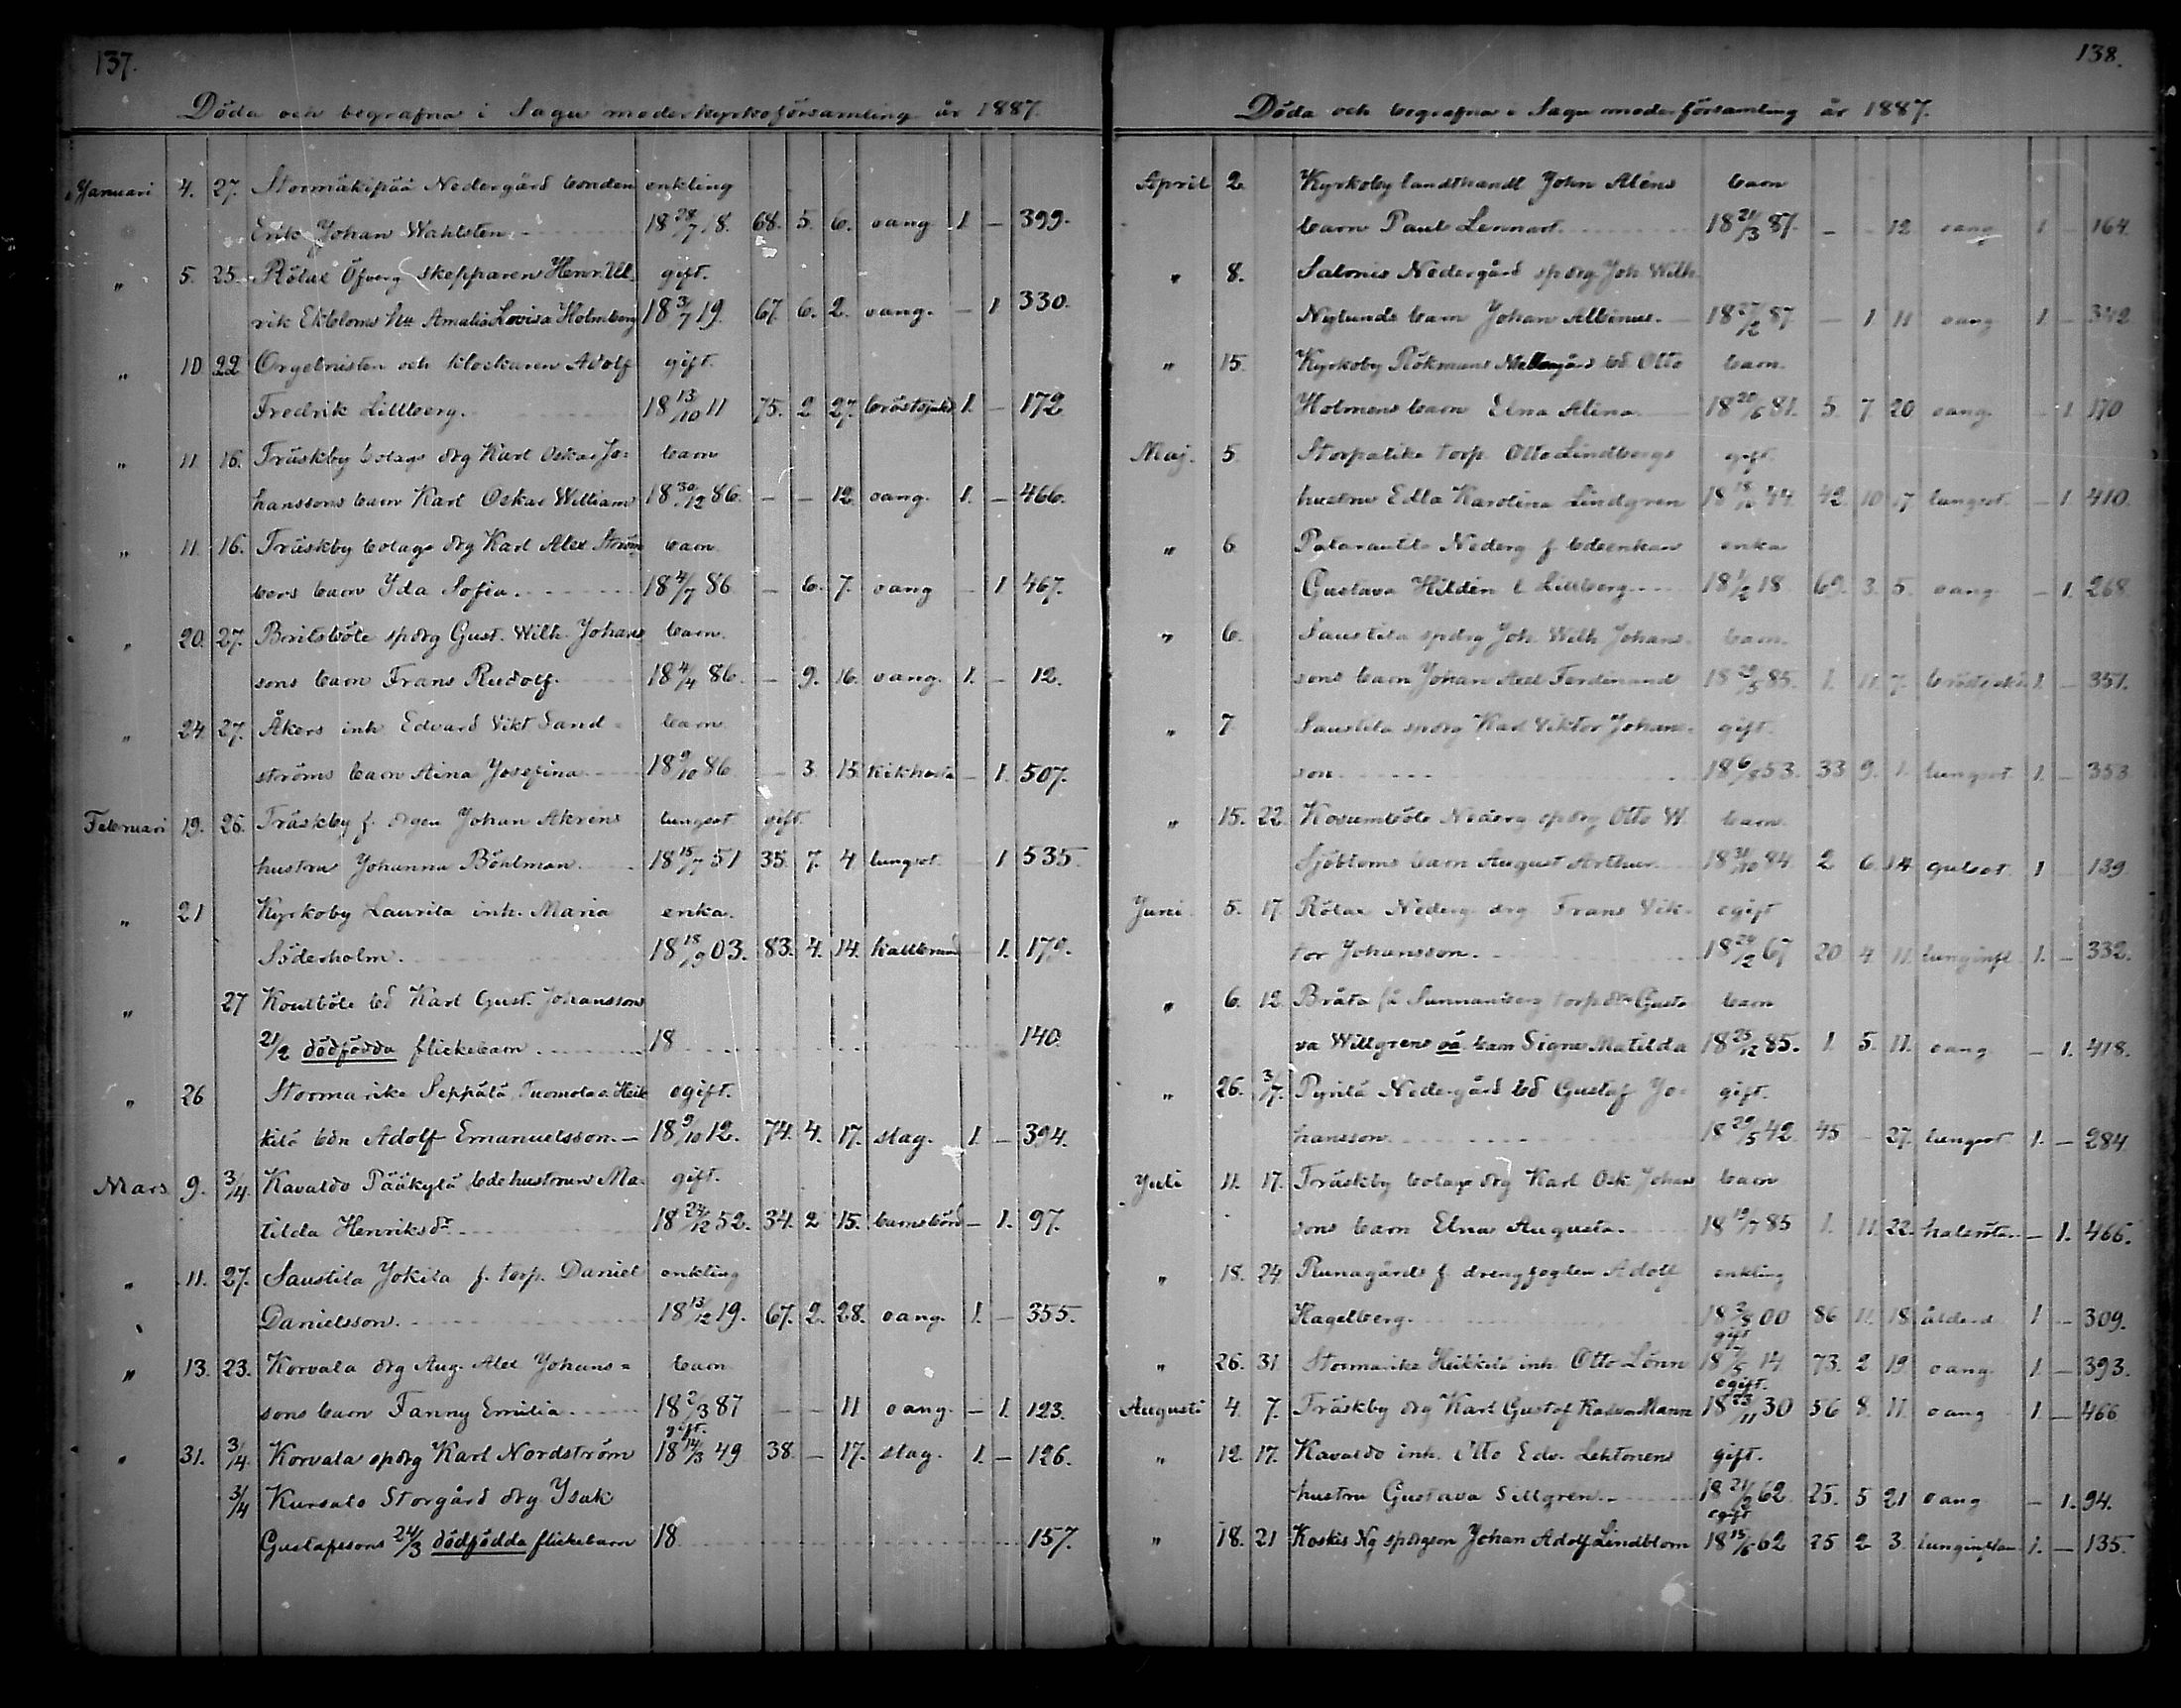 137.
Döda och begrafna i Sagu moderkyrkoförsamling år 1887.
Januari 4. 27. Stormäkipää Nedergård bonden enkling
Erik Johan Wahlsten 18 28/7 18. 68. 5. 6. oang 1. — 399.
" 5. 25. Rölax Öfverg skepparen Henr. Ul- gift.
rik Ekbloms h:u Amalia Lovisa Holmberg 18 3/7 19. 67. 6. 2. oang. — 1 330.
" 10 22 Orgelnisten och klockaren Adolf gift.
Fredrik Lillberg. 18 13/10 11 75. 2 27. bröstsjukd 1. — 172
" 11. 16. Träskby bolags drg Karl Oskar Jo= barn
hanssons barn Karl Oskar William 18 30/12 86. — — 12. oang. 1. — 466.
" 11. 16. Träskby bolags drg Karl Alex Ström barn
bers barn Ida Sofia. 18 4/7 86 — 6. 7. oang — 1 467.
" 20. 27. Britsböle spdrg Gust. Wilh. Johans barn.
sons barn Frans Rudolf. 18 4/4 86. — 9. 16. oang. 1. — 12.
" 24. 27. Åkers inh Edvard Vikt Sand= barn
ströms barn Aina Josefina 18 9/10 86 — 3. 15. kikhosta — 1. 507.
Februari 19. 26. Träskby f. drgen Johan Akréns lungsot gift
hustru Johanna Böhlman 18 15/7 51 35. 7. 4 lungsot. — 1 535
" 21 Kyrkoby Laurila inh. Maria enka.
Söderholm. 18 18/9 03. 83. 4. 14. kallbrand — 1. 179.
" 27 Koulböle bd Karl Gust. Johanssons
21/2 dödfödda flickebarn 18 140.
" 26 Stormarike Seppälä, Tuomola o. Heik ogift.
kilä bdn Adolf Emanuelsson. — 18 9/10 12. 74. 4. 17. slag. 1. — 394.
Mars 9. 3/4. Kavaldo Pääkylä bdehustrun Ma- gift.
tilda Henriksdr 18 24/12 52. 34. 2 15. barnsbörd — 1. 97.
" 11. 27. Saustila Jokila f. torp. Daniel enkling
Danielsson. 18 13/12 19. 67. 2. 28. oang. 1. — 355.
" 13. 23. Korvala drg Aug. Alex Johans= barn
sons barn Fanny Emilia. 18 2/3 87 — — 11 oang. — 1. 123.
gift.
" 31. 3/4. Korvala spdrg Karl Nordström 18 14/3 49 38. — 17. slag. 1. — 126.
3/4 Kursalo Storgård drg Isak
Gustafssons 24/3 dödfödda flickebarn 18 157.
138.
Döda och begrafna i Sagu moderförsamling år 1887.
April 2. Kyrkoby landthandl John Aléns barn
barn Paul Lennart. 18 21/3 87. — — 12 oang 1 — 164.
" 8. Salonis Nedergård spdrg Joh Wilh.
Nylunds barn Johan Albinus. — 18 27/2 87 — 1 11 oang 1. — 342
" 15. Kyrkoby Rökmans Mellangård bd Otto barn.
Holmens barn Elna Alina 18 26/6 81. 5. 7 20 oang. — 1. 170
Maj. 5. Storpatika torp. Otto Lindbergs gift.
hustru Edla Karolina Lindgren 44. 42. 10 17 lungsot. — 1 410.
" 6. Nederg f bdeenkan enka
Gustava Hildén f. Lillberg 18 1/2 18 69. 3. 5. oang — 1. 268.
" 6. Saustila spdrg Joh. Wilh Johans- barn.
sons barn Johan Axel Ferdinand 18 29/5 85. 1. 11. 7. 1. — 351.
" 7 Saustila spdrg Karl Viktor Johans- gift.
son 18 6/8 53. 33 9. 1. lungsot 1. — 353
" 15. 22. Kosumböle Nederg spdrg Otto W. barn.
Sjöbloms barn August Arthur 18 31/10 84. 2 6. 14 gulsot 1 — 139
Juni 5. 17. Rölax Nederg. drg Frans Vik- ogift
tor Johansson. 18 24/2 67 20 4 11. lunginfl 1. — 332.
" 6. 12. Bråta få Sunnanberg torpdtr Gusta barn
va Willgrens oä barn Signe Matilda 18 25/12 85. 1. 5. 11. oang — 1. 418.
" 26. 3/7. Pyrilä Nedergård bd Gustaf Jo- gift.
hansson. 18 29/5 42 45 — 27. lungsot 1. — 284
Juli 11. 17. Träskby bolags drg Karl Osk. Johans barn
sons barn Elna Augusta. 18 19/7 85 1. 11. 22. halsröta — 1. 466.
" 18. 24 Runagårds f drengfogden Adolf enkling
Hagelberg. 18 3/8 00 86 11. 18 ålderd. 1 — 309.
gift
" 26. 31 Stormarike Heikkilä inh. Otto Lönn 18 7/5 14 73. 2 19 oang 1. — 393.
ogift.
Augusti 4. 7. Träskby drg Karl Gustaf Mann 18 23/11 30 56 8. 11. oang 1 — 466
" 12. 17. Kavaldo inh. Otto Edv. Lehtonens gift.
hustru Gustava Sillgren. 18 21/2 62 25. 5 21 oang — 1. 94.
ogift
" 18. 21 Koskis Ng spdrgson Johan Adolf Lindblom 18 15/6 62 25 2 3. lunginflam 1. — 135.